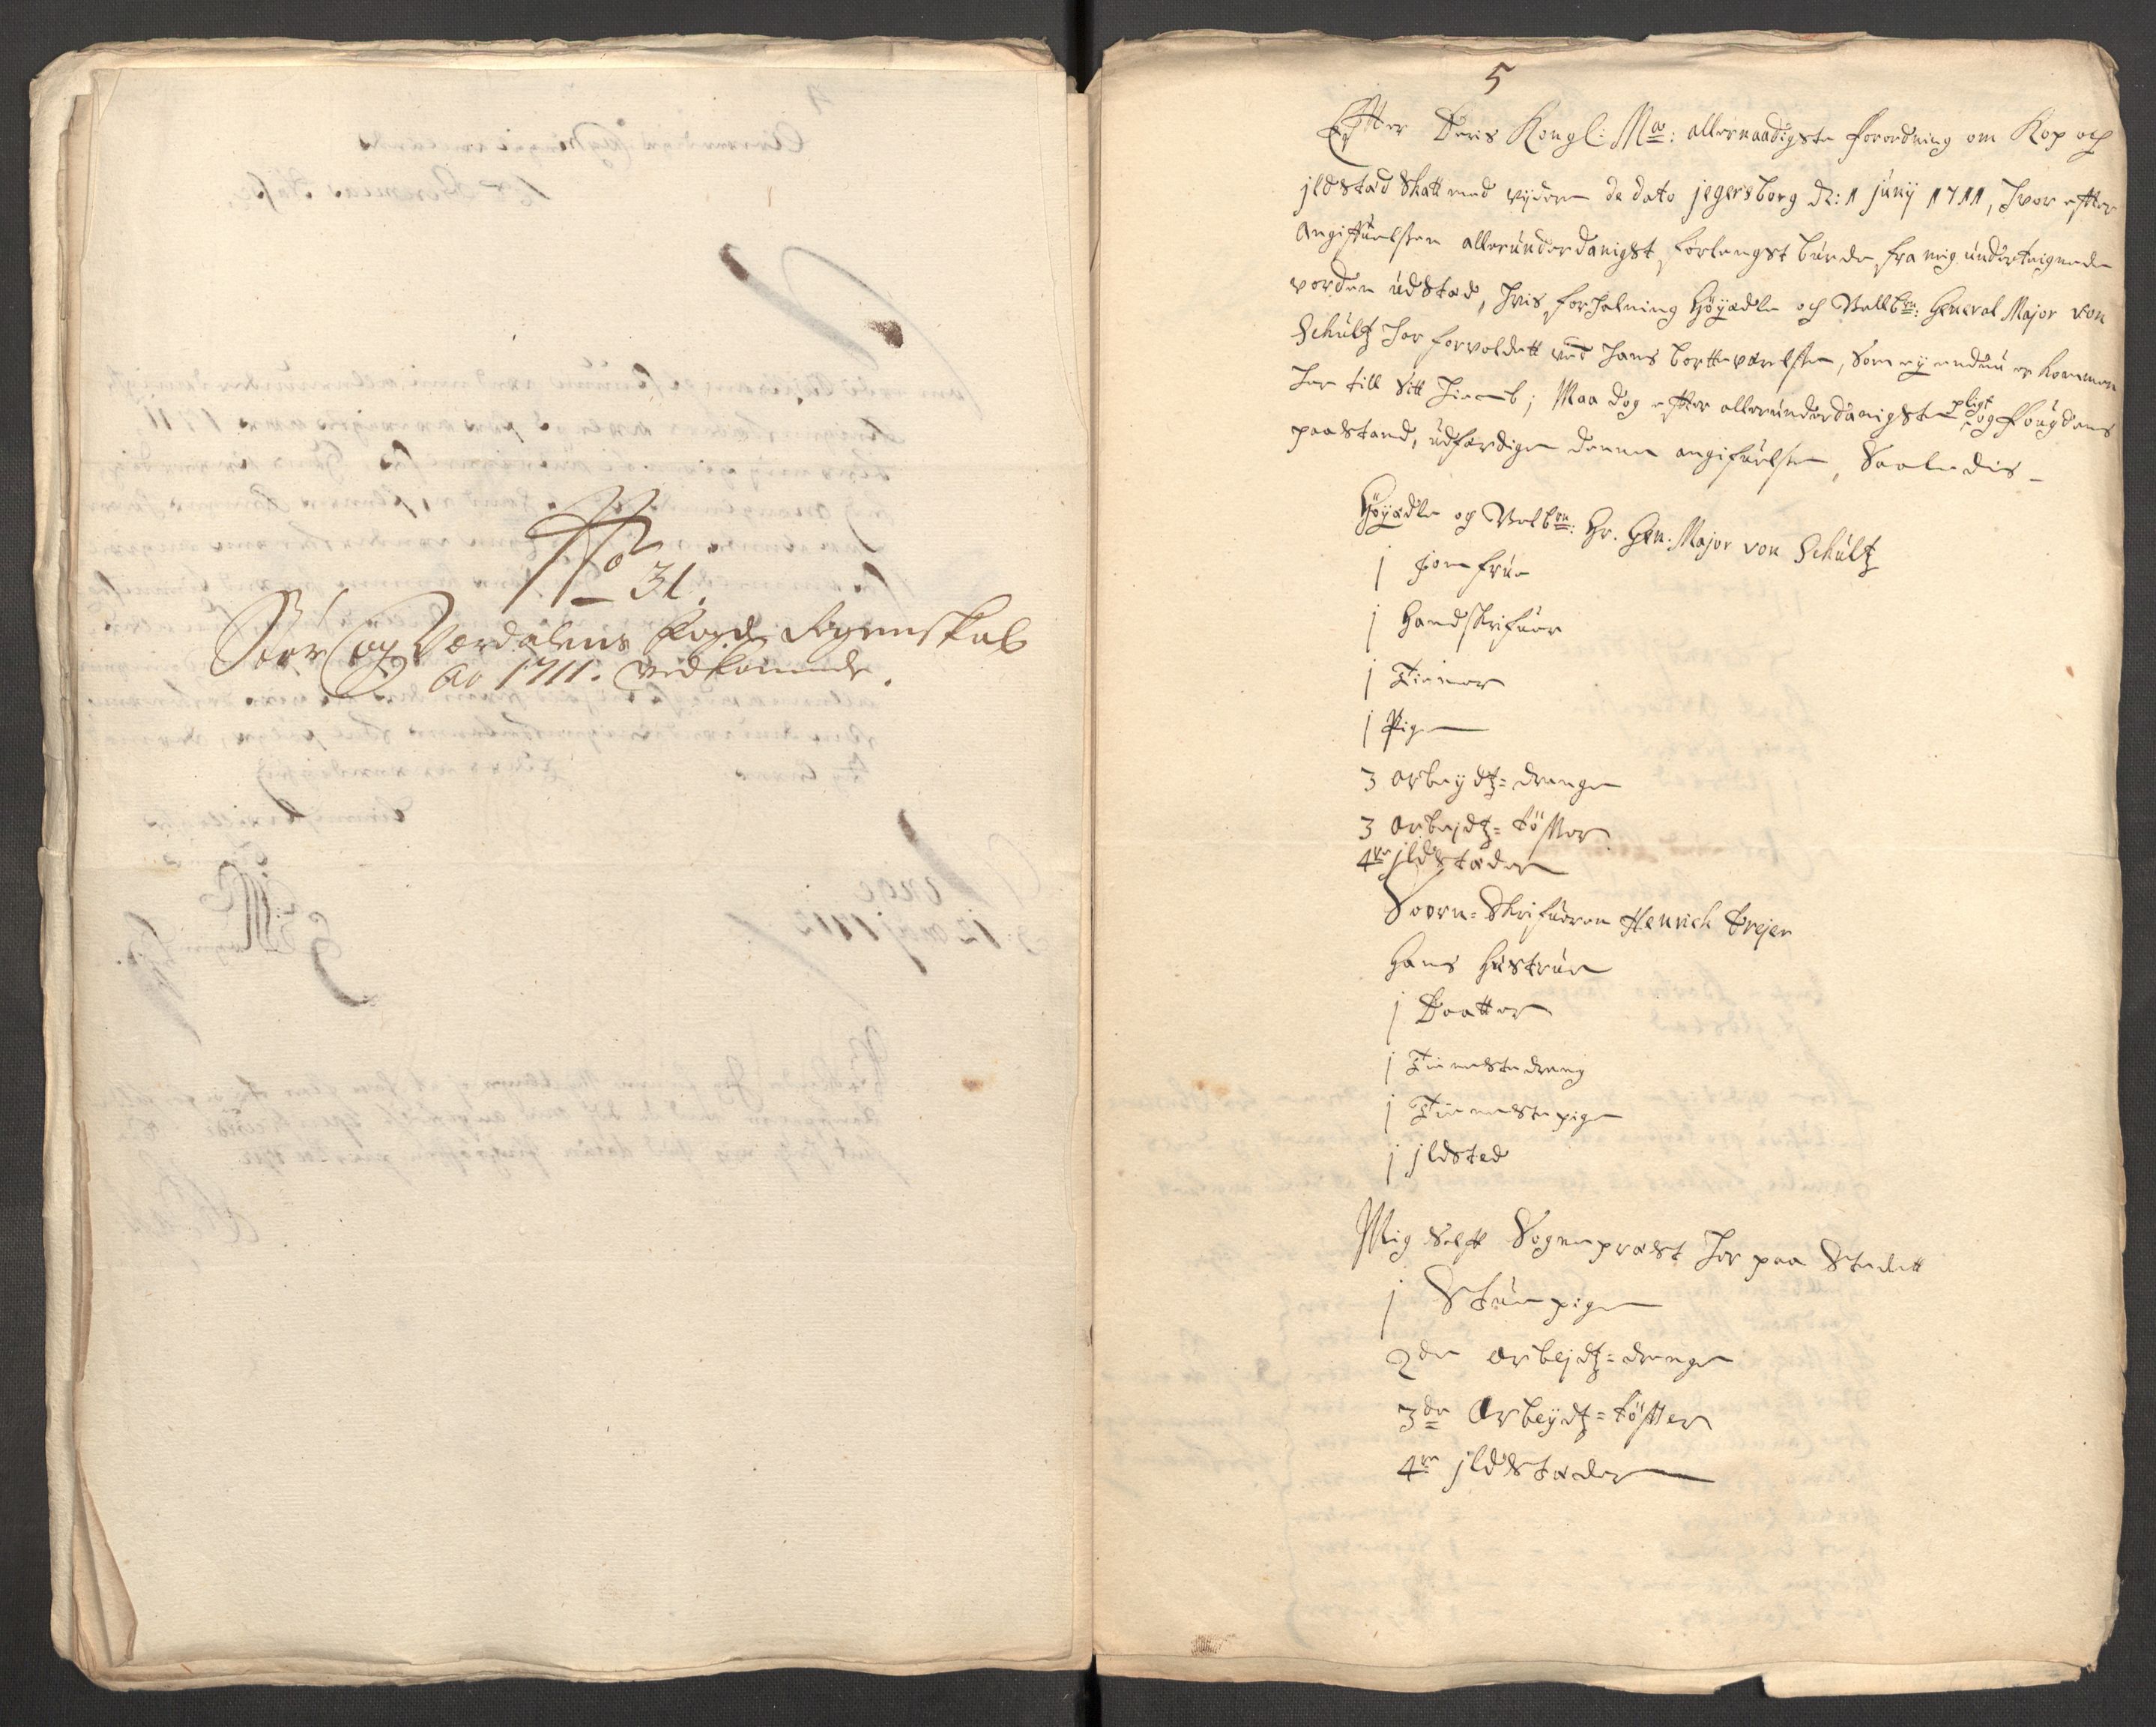 No 31.
Stør og Værdalens Fogd. Regenskab
ao 1711. vedkommende.
5
Efter Deris Kongl: Ma: allernaadigste forordning om Kop och
jldstæd Skatt med vijdere de dato jegersborg d: 1 junij 1711, hvor efter
Angiffuelssen allerunderdanigst forlengst burde fra mig undertegnede
vorden udstæd, hvis forhalning Höyædle och Vellbne: General Major von
Schultz har forvoldett ved hans borttværelsse, som ey endnu er kommen
her till sitt hiemb; Maa dog efter allerunderdanigste pligt og fougdens
paastand, udferdige denne angifuelsse, Saaledis –
Höyædle og Velbne: Hr. Gen. Major von Schultz
j jomfrue
j Handskrifuer
j Tienner
j Pige
3 arbeydtz=drenge
3 arbejdtz=töffter
4re jldstæder
Soern=Skrifueren Henrich Brejer
Hans Hustrue
j Daatter
j Tienestedreng
j Tiennestepige
j jldsted
Mig Selff Sognepræst her paa Stedett
j Stuepige
2de arbejdtz=drenge
3de Arbeydtz=töffter
4re jldstæder